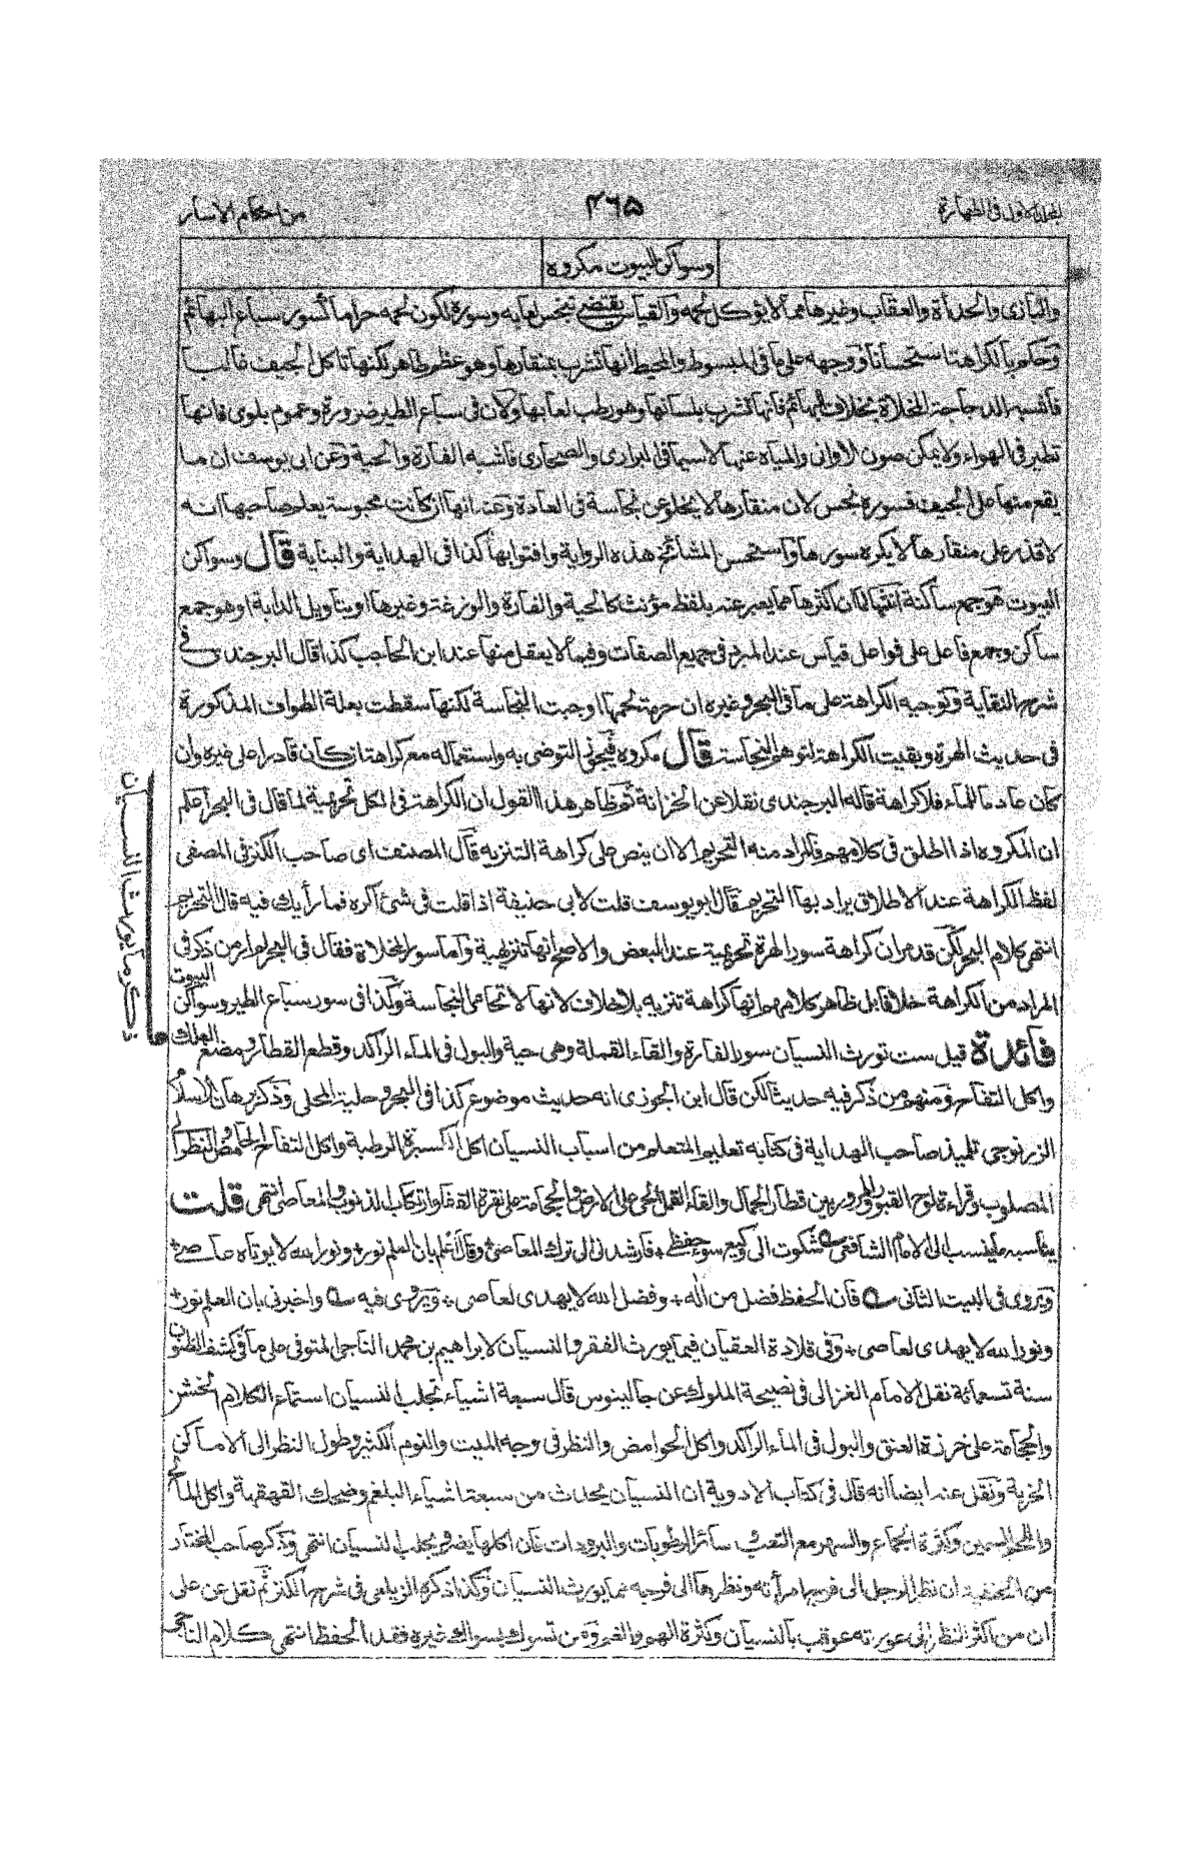 المجلد الاول فى الطهارة
٤٦٥
من احكام الاسار
وسواكن البيوت مكروه
والبازى والحدأة والعقاب وغيرها مما لا يؤكل لحمه والقياس يقتضى تنجس لعابه وسوره لكون لحمه حراما كسور سباع البهائم
وحكموا بالكراهة استحسانا ووجهه على ما فى المبسوط والمحيط انها تشرب بمنقارها وهو عظم طاهر لكنها تاكل الجيف غالب
فاشبه الدجاجة المخلاة بخلاف البهائم فانها تشرب بلسانها وهو رطب لعابها ولان فى سباع الطير ضرورة وعموم بلوى فانها
تطير فى الهواء ولا يمكن صون الاوانى والمياه عنها لا سيما فى البرارى والصحارى فاشبه الفارة والحية وعن ابى يوسف ان ما
يقع منها على الجيف فسوره نجس لان منقارها لا يخلو عن نجاسة فى العادة وعنه انها ان كانت محبوسة يعلم صاحبها انه
لا قذر على منقارها لا يكره سورها واستحسن المشائخ هذه الرواية وافتوا بها كذا فى الهداية والبناية قال وسواكن
البيوت هو جمع ساكنة انثها لما ان اكثرها مما يعبر عنه بلفظ مؤنث كالحية والفارة والوزغة وغيرها او بتاويل الدابة او هو جمع
ساكن وجمع فاعل على فواعل قياس عند المبرد فى جميع الصفات وفيما لا يعقل منها عند ابن الحاجب كذا قال البرجندى فى
شرح النقاية وتوجيه الكراهة على ما فى البحر وغيره ان حرمة لحمها اوجبت النجاسة لكنها سقطت بعلة الطواف المذكورة
فى حديث الهرة وبقيت الكراهة لتوهم النجاسة قال مكروه فيجوز التوضى به واستعماله مع كراهة ان كان قادرا على غيره وان
كان عادما للماء فلا كراهة قاله البرجندى نقلا عن الخزانة ثم ظاهر هذا القول ان الكراهة فى الكل تحريمية لما قال فى البحر اعلم
ان المكروه اذا اطلق فى كلامهم فالمراد منه التحريم الا ان ينص على كراهة التنزيه قال المصنف اى صاحب الكنز فى المصفى
لفظ الكراهة عند الاطلاق يراد بها التحريم قال ابو يوسف قلت لابى حنيفة اذا قلت فى شئ اكره فما رأيك فيه قال التحريم
انتهى كلام البحر لكن قد مر ان كراهة سور الهرة تحريمية عند البعض والاصح انها تنزيهية واما سور المخلاة فقال فى البحر لم ار من ذكر فى
المراد من الكراهة خلافا بل ظاهر كلامهم انها كراهة تنزيه بلا خلاف لانها لا تحامى النجاسة وكذا فى سور سباع الطير وسواكن البيوت
فائدة قيل ست تورث النسيان سور الفارة والقاء القملة وهى حية والبول فى الماء الراكد وقطع القطار ومضغ العلك
واكل التفاح ومنهم من ذكر فيه حديثا لكن قال ابن الجوزى انه حديث موضوع كذا فى البحر وحلية المحلى وذكر برهان الاسلام
الزرنوجى تلميذ صاحب الهداية فى كتابه تعليم المتعلم من اسباب النسيان اكل الكسبرة الرطبة واكل التفاح الحامض والنظر الى
المصلوب وقراءة لوح القبور والمرور بين قطار الجمال والقاء القمل الحى على الارض والحجامة على نقرة القفا وارتكاب الذنوب والمعاصى انتهى قلت
يناسبه ما ينسب الى الامام الشافعى شكوت الى وكيع سوء حفظى فارشدنى الى ترك المعاصى وقال اعلم بان العلم نور ونور الله لا يؤتاه عاصى
ويروى فى البيت الثانى فان الحفظ فضل من اله وفضل الله لا يهدى لعاصى ويروى فيه واخبرنى بان العلم نور
ونور الله لا يهدى لعاصى وفى قلادة العقيان فيما يورث الفقر والنسيان لابراهيم بن محمد الناجى المتوفى على ما فى كشف الظنون
سنة تسعمائة نقل الامام الغزالى فى نصيحة الملوك عن جالينوس قال سبعة اشياء تجلب النسيان استماع الكلام الخشن
والحجامة على خرزة العنق والبول فى الماء الراكد واكل الحوامض والنظر فى وجه الميت والنوم الكثير وطول النظر الى الاماكن
الخربة ونقل عنه ايضا انه قال فى كتاب الادوية ان النسيان يحدث من سبعة اشياء البلغم وضحك القهقهة واكل المالح
واللحم السمين وكثرة الجماع والسهر مع التعب سائر الرطوبات والبرودات فان اكلها يضر ويجلب النسيان انتهى وذكر صاحب المختار
من الحنفية ان نظر الرجل الى فرج امرأته ونظرها الى فرجه مما يورث النسيان وكذا ذكره الزيلعى فى شرح الكنز ثم نقل عن على
ان من اكثر النظر الى عورته عوقب بالنسيان وكثرة الهم والغم ومن تسوك بسواك غيره فقد الحفظ انتهى كلام الناجى
ذكر ما يورث النسيان